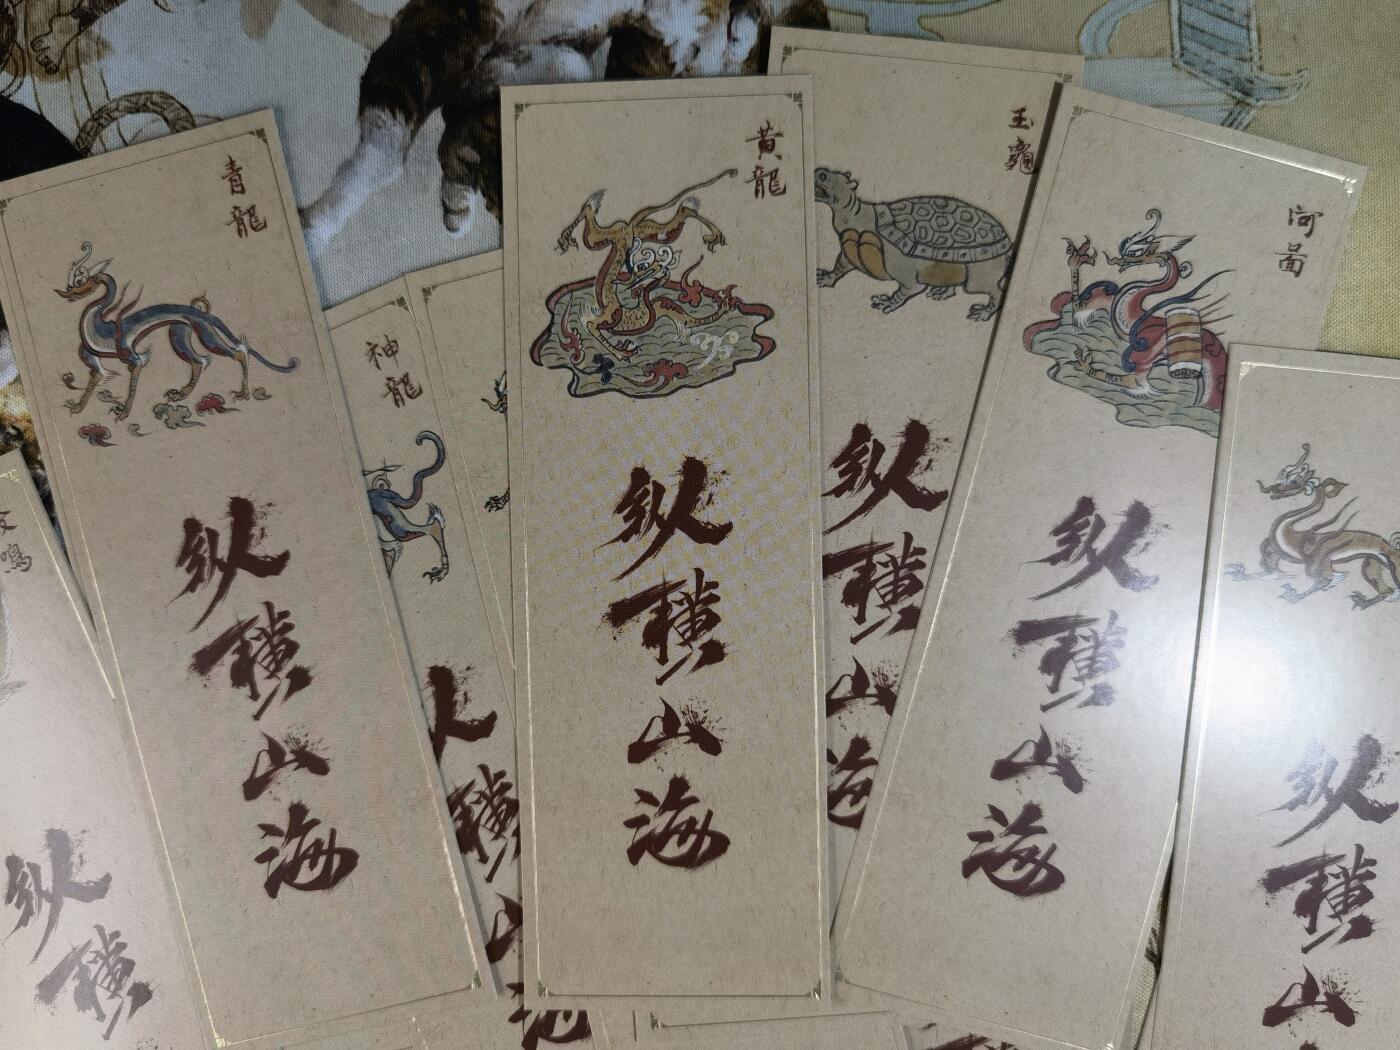 青龍
纵横山海
神龍
人横
黄龍
纵横山海
玉龜
纵横山海
河圖
纵横山海
纵横山
鳴
纵横